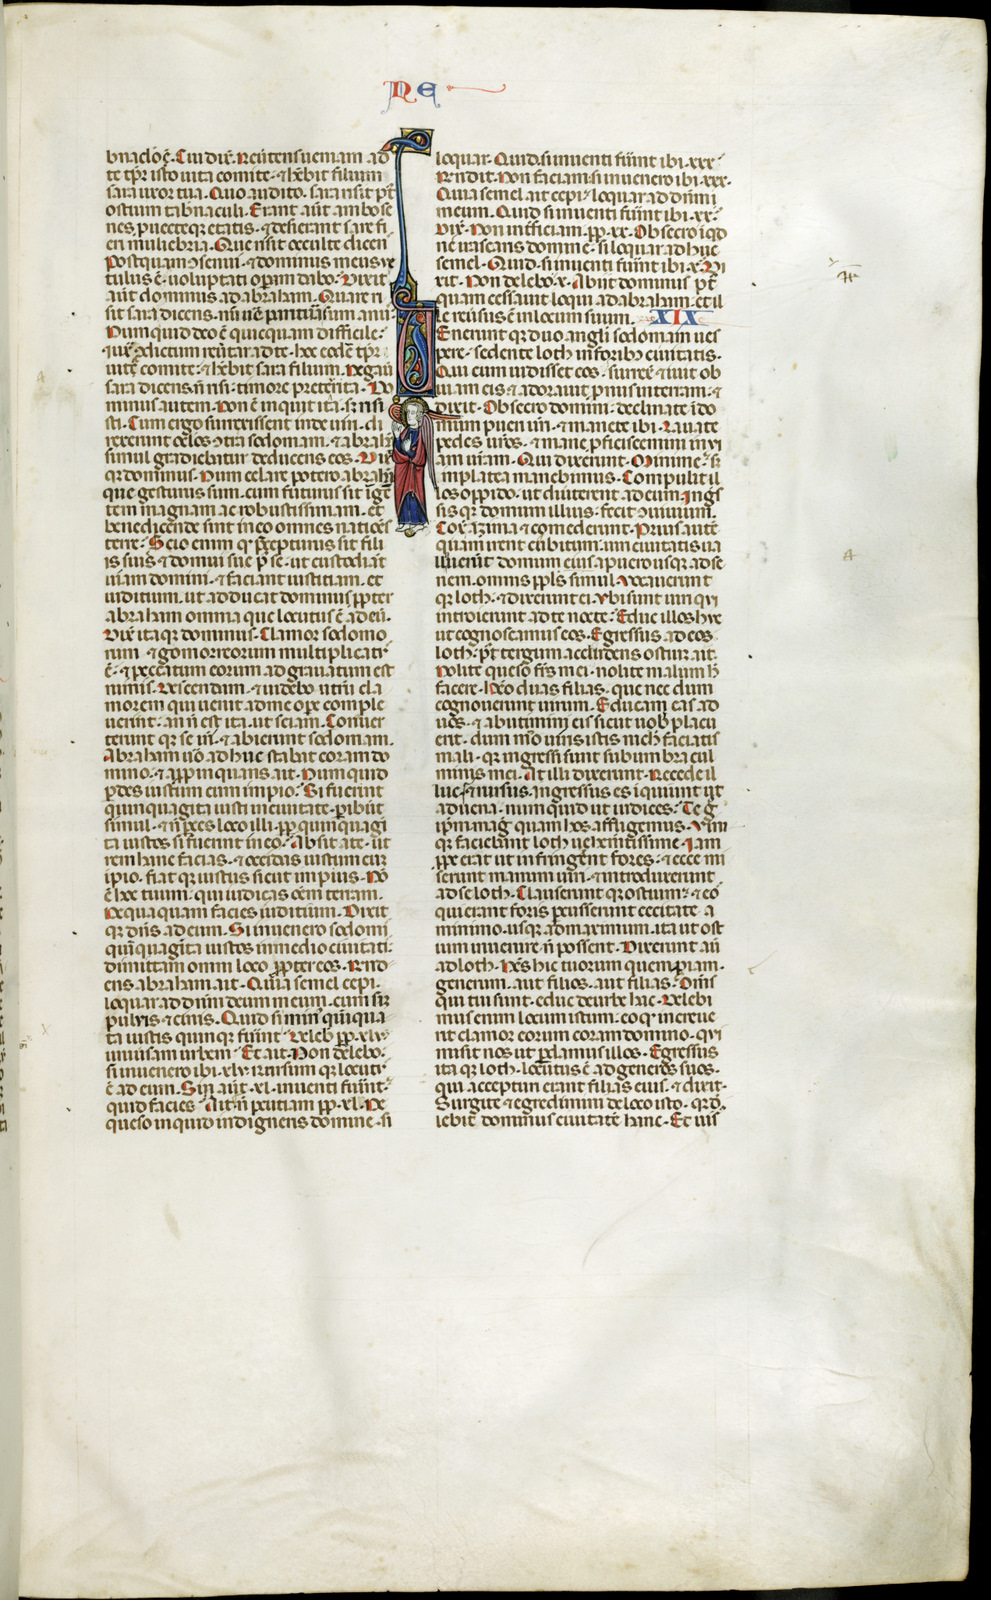 NE
bnaclo ē. Cui dix̄. Reūtens ueniam ad
te tp̄r isto uita comite. ⁊ hēbit filium
sara uxor tua. Quo audito. sara risit pᵗ
ostium tabnaculi. Erant aūt ambo se
nes, puecteqꝫ etatis. ⁊ desierant sare fi
eri muliebria. Que risit occulte dicens
Postquam ɔsenui. ⁊ dominus meus ue
tulus ē. uoluptati opam dabo. Dixit
aūt dominus ad abraham. Quare ri
sit sara dicens. nū uē paritura sum anus
Numquid deo ē quicquam difficile.
iux̄ ɔdictum reūtar ad te. hoc eodē tp̄r
uite comite. ⁊ hēbit sara filium. Negau
sara dicens. n̄ risi. timore pterrita. Do
minus autem. Non ē inquit ita. sꝫ risi
sti. Cum ergo surrexissent inde uiri. di
rexerunt oclos ɔtra sodomam. ⁊ abrahā
simul gradiebatur deducens eos. Dix̄
qꝫ dominus. Num celare potero abrahā
que gesturus sum. cum futurus sit ī gē
tem magnam ac robustissimam. et
benedicende sint in eo omnes nationes
terre. Scio enim qꝫ precepturus sit fili
is suis ⁊ domui sue p se. ut custodiāt
uiam domini. ⁊ faciant iustitiam. et
iuditium. ut adducat dominus ppter
abraham omnia que locutus ē ad eū.
Dix̄ itaqꝫ dominus. Clamor sodomo
rum ⁊ gomorreorum multiplicatꝰ
ē. ⁊ peccatum eorum adgrauatum est
nimis. Descendam. ⁊ uidebo utrū cla
morem qui uenit ad me ope comple
uerint. an n̄ est ita. ut sciam. Conuer
terunt qꝫ se īn. ⁊ abierunt sodomam.
Abraham uō adhuc stabat coram do
mino. ⁊ appinquans ait. Numquid
pdes iustum cum impio. Si fuerint
quinquaginta iusti in ciuitate. pibūt
simul. ⁊ n̄ pces loco illi. pp quinquagī
ta iustos si fuerint in eo. Absit a te. ut
rem hanc facias. ⁊ occidas iustum cum
ipio. fiat qꝫ iustus sicut impius. Nō
ē hoc tuum. qui iudicas oēm terram.
Nequaquam facies iuditium. Dixit
qꝫ dn̄s ad eum. Si inuenero sodomis
quīquagīta iustos in medio ciuitatis.
dimittam omni loco ppter eos. Rn̄d
ens abraham ait. Quia semel cepi.
loquar ad dn̄m deum meum. cum sim
puluis ⁊ cinis. Quid si minꝰ quinqua
ta iustis quinqꝫ fūint. Deleb pp. xlv.
uniuersam urbem. Et ait. Non delebo.
si inuenero ibi. xlv. Rursum qꝫ locutꝰ
ē ad eum. Sin aūt. xl. inuenti fūint.
quid facies. Ait. n̄ pcutiam pp. xl. Ne
queso inquid indigneris domine. si
loquar. Quid si inuenti fūint ibi. xxx.
Rn̄dit. Non faciam. si inuenero ibi. xxx.
Quia semel ait cepi. ⁊ loquar ad dn̄m
meum. Quid si inuenti fūint ibi. xx.
Dix̄. Non int̄ficiam. pp. xx. Obsecro inqd
ne irascaris domine. si loquar adhuc
semel. Quid. si inuenti fūint ibi. x. Di
xit. Non delebo. x. Abiit dominus pᵗ
quam cessauit loqui ad abraham. et il
le reūsus ē in locum suum. XIX
Enerunt qꝫ duo angli sodomam ues
pere. sedente loth in foribꝫ ciuitatis.
Qui cum uidisset eos. surrexit ⁊ iuit ob
uiam eis. ⁊ adorauit pnus in terram. ⁊
dixit. Obsecro domini. declinate ī do
mum pueri uri. ⁊ manete ibi. Lauate
pedes uros. ⁊ mane pficiscemini in ui
am uram. Qui dixerunt. Minime. sꝫ
in platea manebimus. Compulit il
los oppido. ut diūterent ad eum. Ings
sis qꝫ domum illius. fecit ɔuiuium.
Coxit azima. ⁊ comederunt. Prius autē
quam irent cubitum. uiri ciuitatis ua
llauerūt domum eius. a puero usqꝫ ad se
nem. omnis ppls simul. Vocauerunt
qꝫ loth. ⁊ dixerunt ei. Vbi sunt uiri qui
introierunt ad te nocte. Educ illos huc
ut cognoscamus eos. Egressus ad eos
loth. pᵗ tergum accludens ostium. ait.
Nolite queso frs mei. nolite malum h̄
facere. Hēo duas filias. que nec dum
cognouerunt uirum. Educam eas ad
uos. ⁊ abutimini eis sicut uobꝫ placu
erit. dum mō uiris istis nich faciatis
mali. qꝫ ingressi sunt sub umbra cul
minis mei. At illi dixerunt. Recede il
luc. ⁊ rursus. Ingressus es īquiunt ut
aduena. numquid ut iudices. Te g
ipm mag quam hos affligemus. Vim
qꝫ faciebant loth uehemtissime. Iam
ppe erat ut infringent fores. ⁊ ecce mi
serunt manum uiri. ⁊ introduxerunt
ad se loth. Clauserunt qꝫ ostium. ⁊ eos
qui erant foris pcusserunt cecitate. a
minimo. usqꝫ ad maximum. ita ut ost
ium inuenire n̄ possent. Dixerunt aūt
ad loth. Hes hic tuorum quempiam.
generum. aut filios. aut filias. Om̄s
qui tui sunt. educ de urbe hac. Delebi
mus enim locum istum. eo qꝫ increue
rit clamor eorum coram domino. Qui
misit nos ut pdamus illos. Egressus
ita qꝫ loth. locutus ē ad generos suos.
qui accepturi erant filias eius. ⁊ dixit.
Surgite. ⁊ egredimini de loco isto. qꝫ d
lebit dominus ciuitatē hanc. Et uis